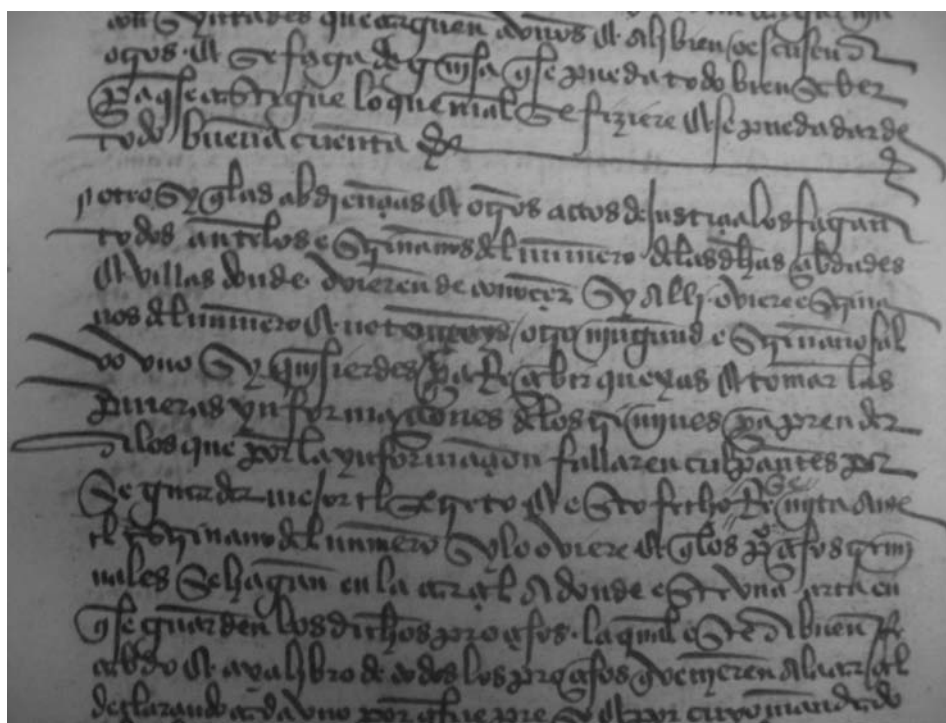 que arguen a unos & alibien
otros & se faga de guisa que se pueda todo bien saber
para que se castigue lo que mal se fiziere & se pueda dar de
todo buena cuenta
otrosy que las abdiençias & otros actos de justiçia los fagan
todos ante los escriuanos del numero de las dichas çibdades
& villas donde ouieren de conoçer sy alli ouiere escriua
nos del numero & no otro ningund escriuano sal
vo vno sy quisierdes para resçebir quexas & tomar las
primeras ynformaçiones de los crimines para prender
a los que por la ynformaçion fallaren culpantes por
se guardar mejor el secreto & esto fecho se remita ante
el escriuano del numero sy lo ouiere & que los proçesos crimi
nales se hagan en la carçel a donde este vna arca en
que se guarden los dichos proçesos la qual este a buen re
cabdo & aya libro de todos los proçesos que
declarando cada vno por